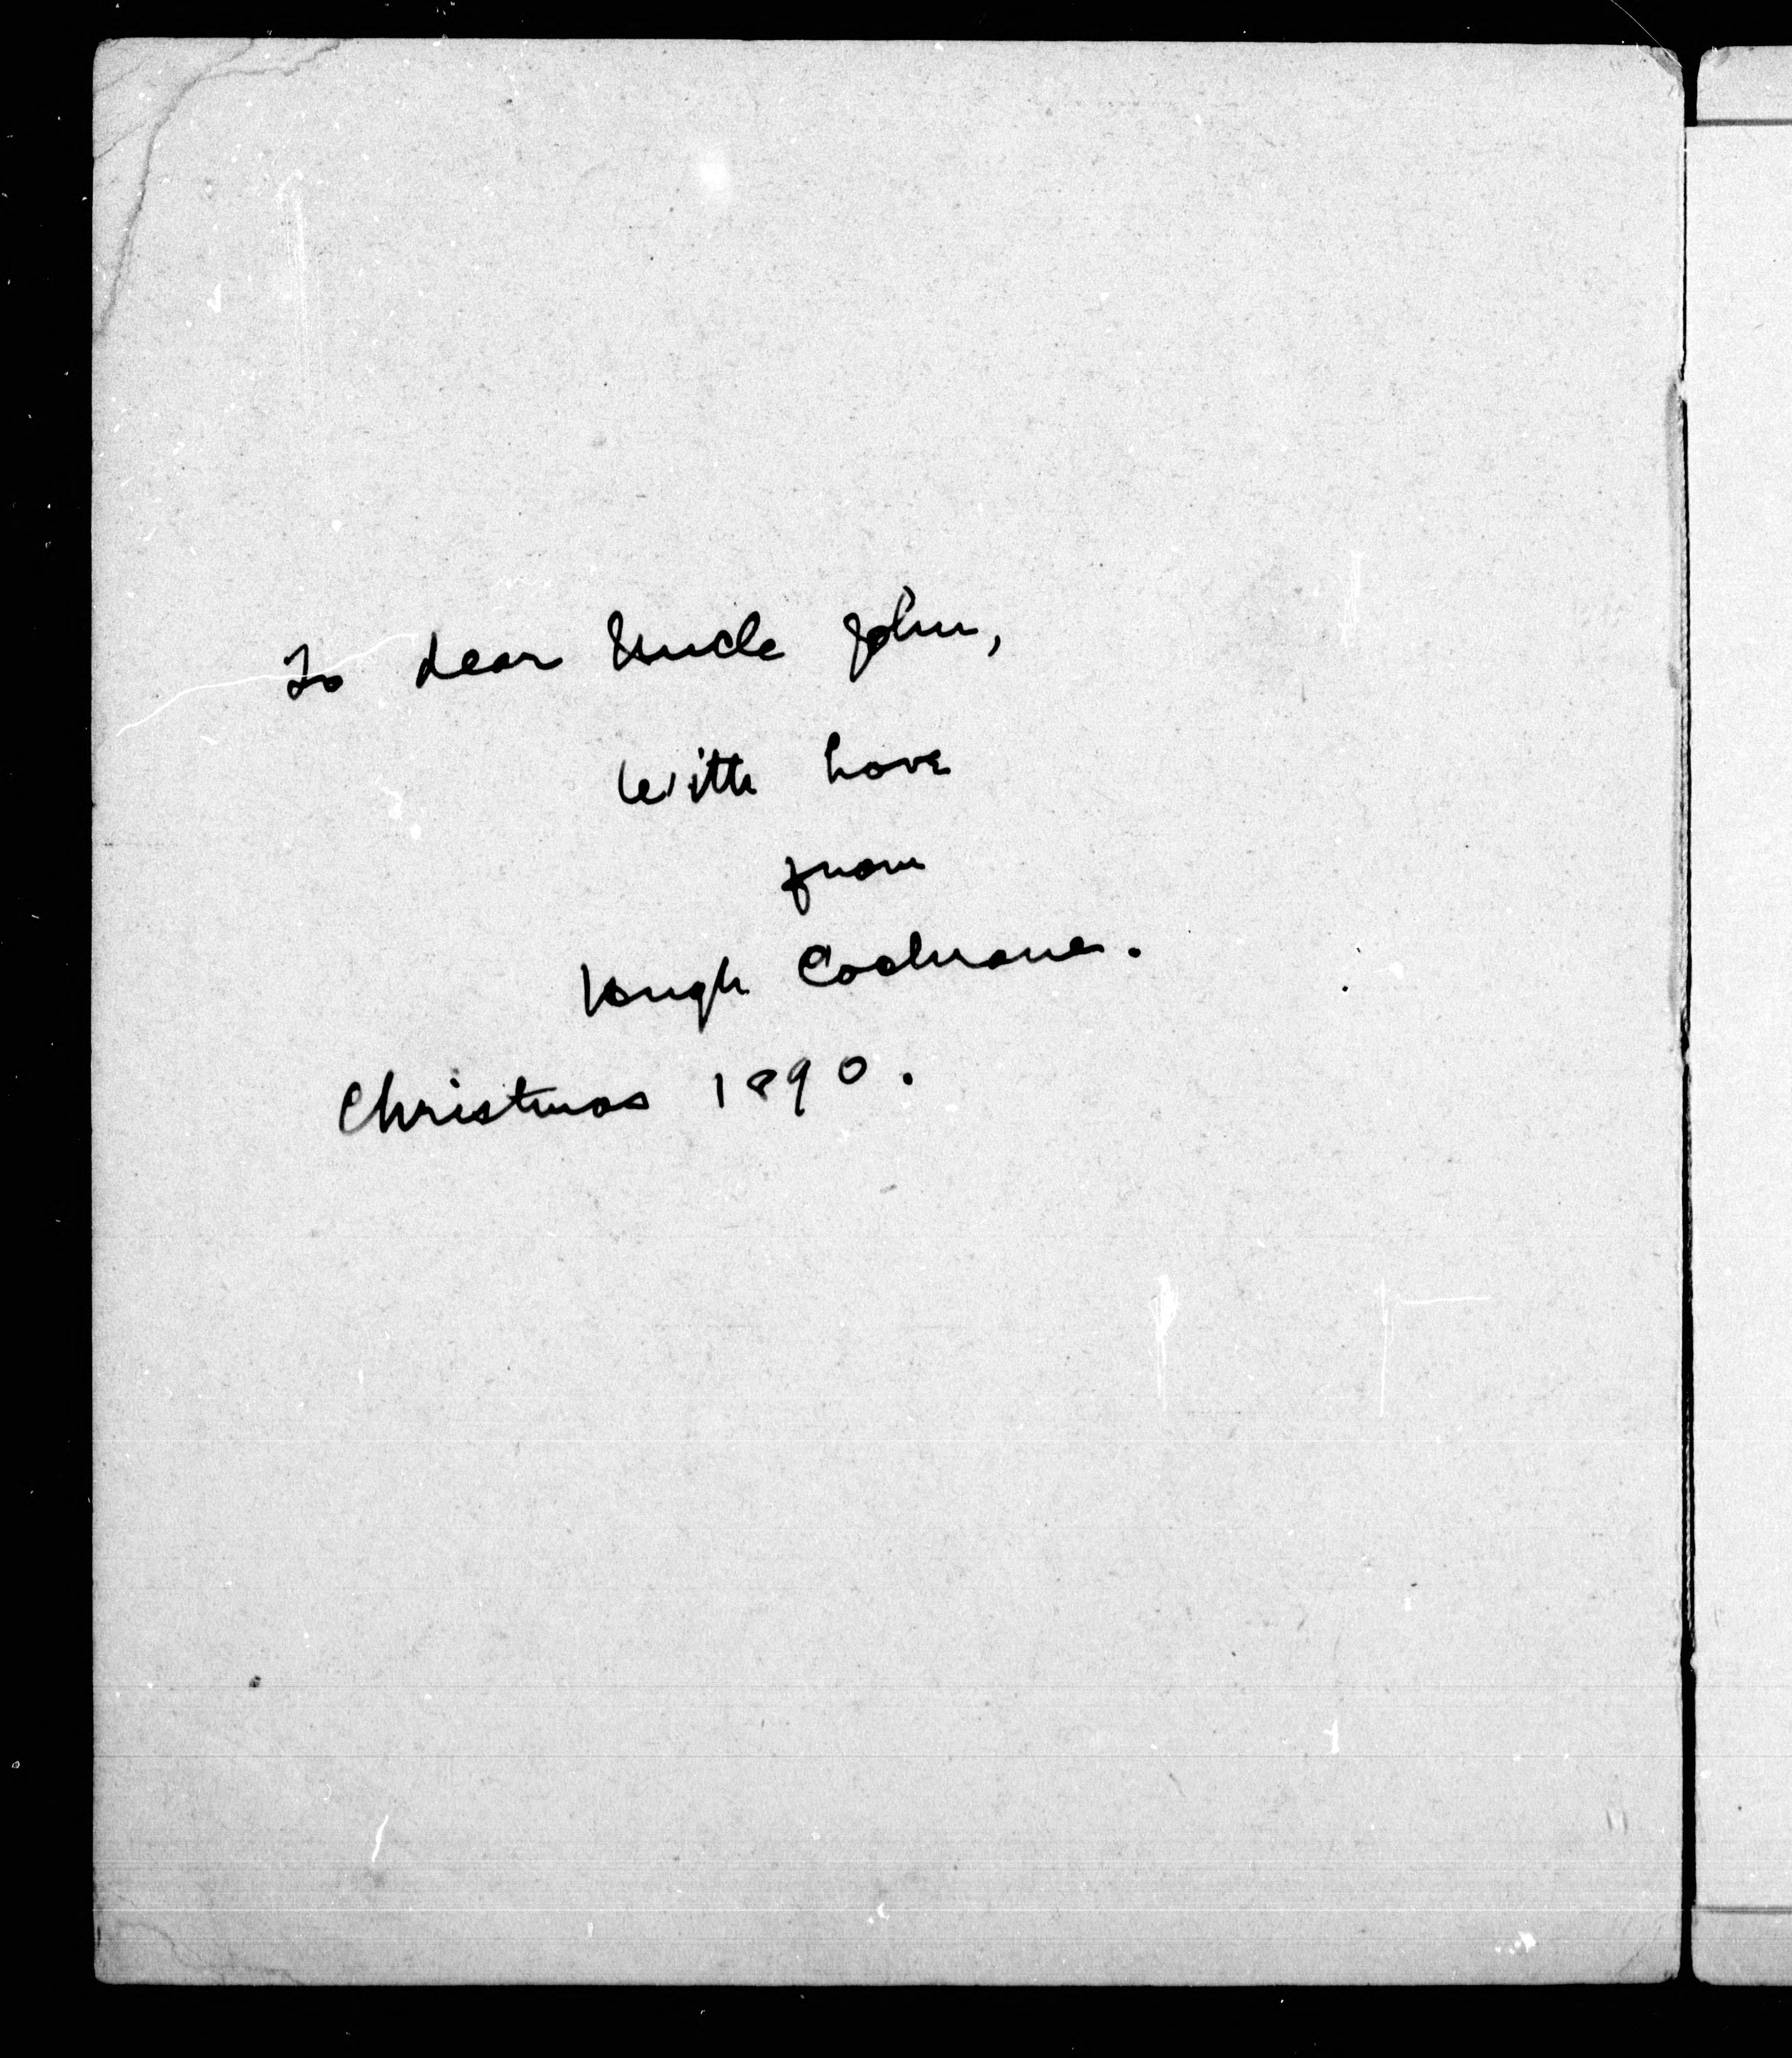 To dear Uncle John,
With love
from
Hugh Cochrane.
Christmas 1890.